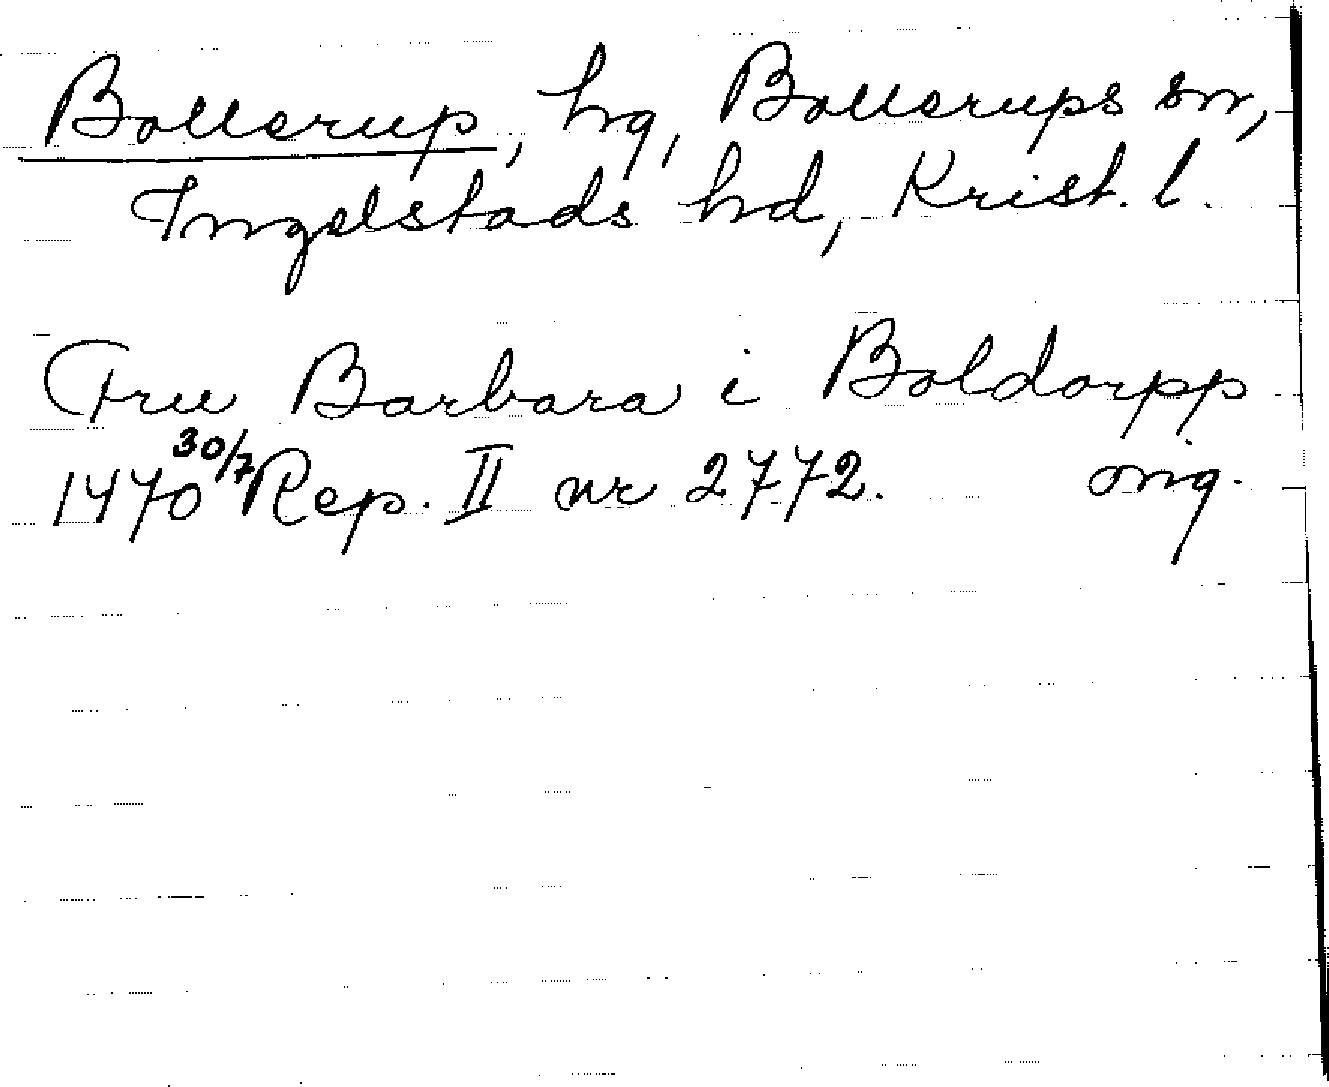 Bollerup, hg, Bollerups sn,
Ingelstads hd, Krist. l.
Fru Barbara i Boldorpp
1470 30/7 Rep. II nr 2772. orig.